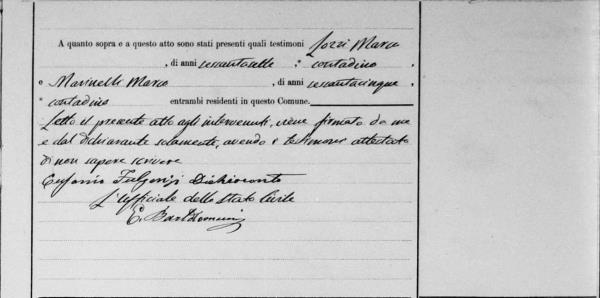 A quanto sopra e a questo atto sono stati presenti quali testimoni Lozzi Marco
, di anni sessantasette , contadino ,
e Marinelli Marco , di anni sessantacinque ,
contadino entrambi residenti in questo Comune.
Letto il presente atto agli intervenuti, viene firmato da me
e dal dichiarante solamente, avendo i testimoni attestato
di non sapere scrivere
Eugenio Fulgenzi Dichiarante
L'Ufficiale dello Stato Civile
E. Bartolomucci